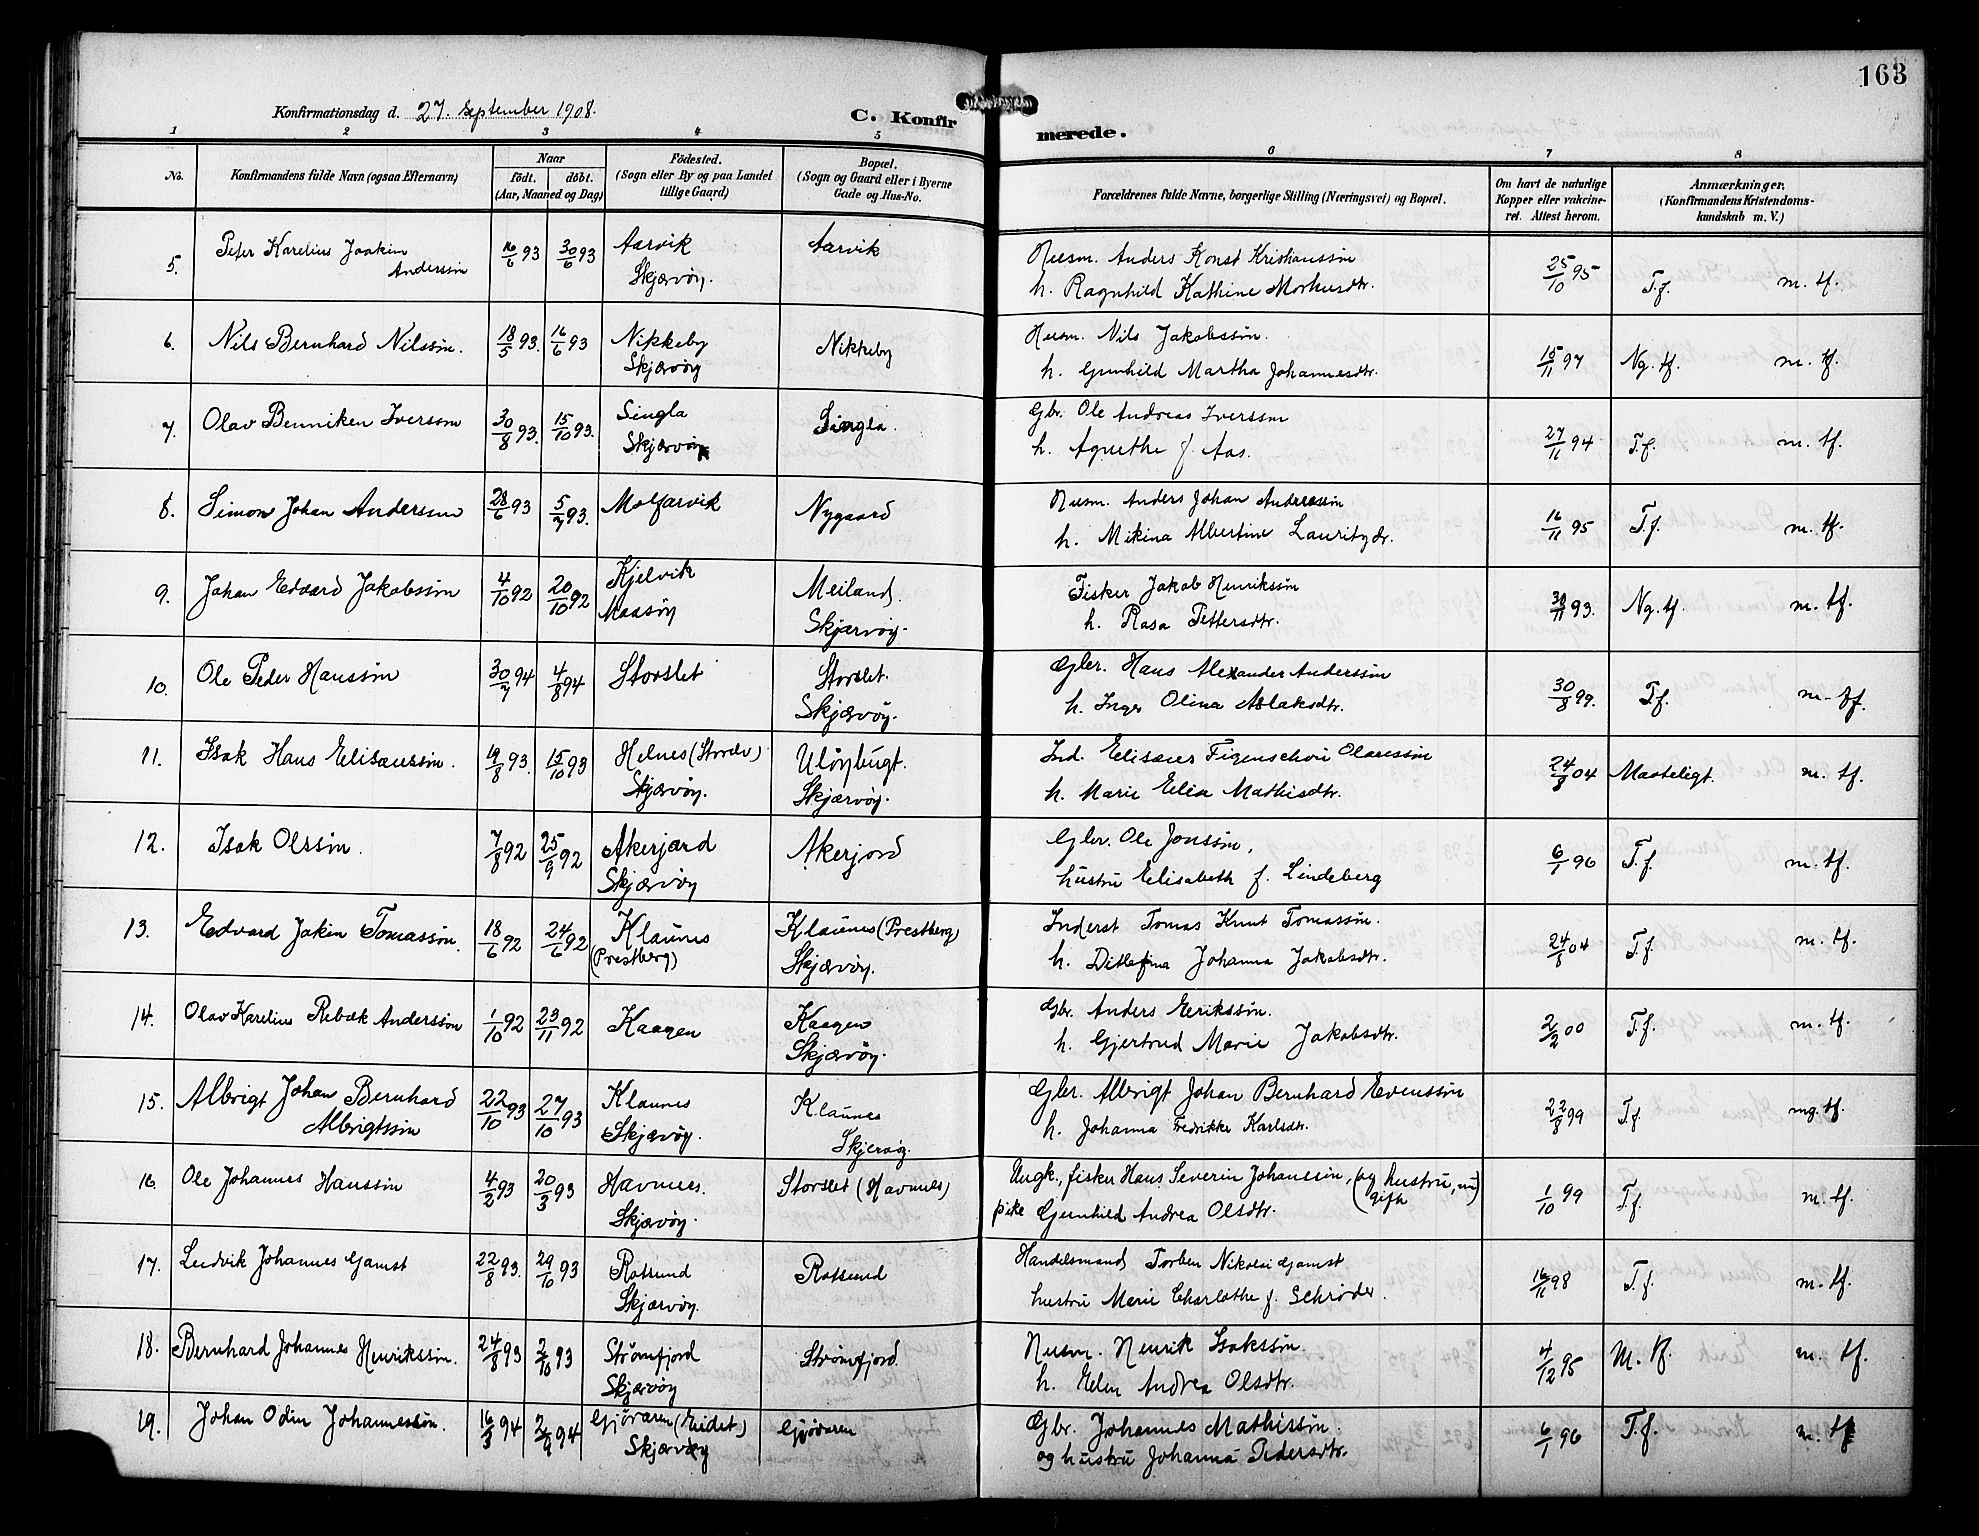 163
Konfirmationsdag d. 27. september 1908.
C. Konfirmerede.
1 2 3 4 5 6 7 8
No.
Konfirmandens fulde Navn (ogsaa Efternavn)
Naar
födt. döbt.
(Aar, Maaned og Dag)
Födested.
(Sogn eller By og paa Landet
tillige Gaard)
Bopæl.
(Sogn og Gaard eller i Byerne
Gade og Hus-No.
Forældrenes fulde Navne, borgerlige Stilling (Næringsvei) og Bopæl.
Om havt de naturlige
Kopper eller vakcine-
ret. Attest herom.
Anmærkninger.
(Konfirmandens Kristendoms-
kundskab m. V.)
5. Peter Karelius Joakim Anderssön 16/6 93 30/6 93 Aarvik Skjærvöy. Aarvik
Husm. Anders Konst Kristianssön
h. Ragnhild Kathine Morkusdtr. 25/10 95 T.f. m. tf.
6. Nils Bernhard Nilssön. 18/5 93. 16/6 93 Nikkeby Skjærvöy Nikkeby
Husm. Nils Jakobssön.
h. Gunhild Martha Johannesdtr. 15/11 97 Ng. tf. m. tf.
7. Olav Benniken Iverssön 30/8 93. 15/10 93. Singla Skjærvöy Singla.
Gbr. Ole Andreas Iverssön
h. Agnethe f. Aas. 27/11 94 T.f. m. tf.
8. Simon Johan Anderssen 28/6 93 5/7 93. Molfarvik Nygaard
Husm. Anders Johan Anderssön
h. Mikina Albertine Lauritzdr. 16/11 95 T.f. m. tf.
9. Johan Edvard Jakobssön 4/10 92 20/10 92 Kjelvik Maasöy Meiland. Skjærvöy.
Fisker Jakob Henrikssön
h. Rasa Pettersdtr. 30/11 93. Ng. tf. m. tf.
10. Ole Peder Hanssön 30/7 94 4/8 94 Storslet Storslet. Skjærvöy.
Gbr. Hans Alexander Anderssön
h. Inger Olina Aslaksdtr. 30/8 99. T.f. m. tf.
11. Isak Hans Elisæussön. 19/8 93. 15/10 93 Helnes (Storelv) Skjærvöy. Ulöybugt. Skjærvöy.
Ind. Elisæus Figenschou Olaussön
h. Marie Elisa Mathisdtr. 24/8 04 Maateligt. m. tf.
12. Isak Olssön. 7/8 92 25/9 92 Akerjord Skjærvöy Akerjord
Gbr. Ole Jonssön,
hustru Elisabeth f. Lindeberg 6/1 96 T.f. m. tf.
13. Edvard Jakin Tomassön. 18/6 92 24/6 92 Klaunes (Prestberg) Klaunes (Prestberg) Skjærvöy.
Inderst Tomas Knut Tomassön.
h. Ditlefina Johanna Jakobsdtr. 24/8 04 T.f. m. tf.
14. Olav Karelius Rebæk Anderssön 1/10 92 23/11 92 Kaagen Kaagen Skjærvöy.
Gbr. Anders Erikssön.
h. Gjertrud Marie Jakobsdtr. 2/2 00 T.f. m. tf.
15. Albrigt Johan Bernhard Albrigtssön 22/10 93 27/10 93 Klaunes Skjærvöy. Klaunes Skjervöy.
Gbr. Albrigt Johan Bernhard Evenssön
h. Johanna Fredrikke Karlsdtr. 22/8 99 T.f. mg. tf.
16. Ole Johannes Hanssön 4/2 93 20/3 93 Havnnes. Skjærvöy. Storslet (Havnnes)
Ungk., fisker Hans Severin Johanssön, (og hustru, nu gift)
pike Gunhild Andrea Olsdtr. 1/10 99 T.f. m. tf.
17. Ludvik Johannes Gamst 22/8 93. 29/10 93 Rotsund Skjærvöy. Rotsund
Handelsmand Torben Nikolai Gamst
hustru Marie Charlothe f. Schröder. 16/11 98 T.f. m. tf.
18. Bernhard Johannes Henrikssön. 24/8 93 2/10 93 Strömfjord Skjærvöy Strömfjord.
Husm. Henrik Isakssön.
h. Elen Andrea Olsdtr. 4/12 95 M. tf. m. tf.
19. Johan Odin Johannessön. 16/3 94 2/9 94 Gjövaren (Eidet) Skjærvöy Gjövaren
Gbr. Johannes Mathissön.
og hustru Johanna Pedersdtr. 6/1 96 T.f. m. tf.